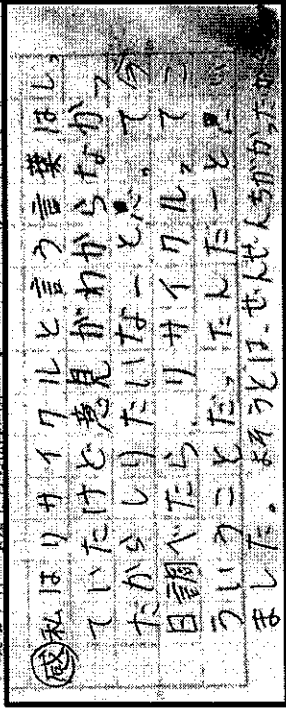 感 私はリサイクルと言う言葉はしっ
ていたけど意見がわからなかっ
たからしりたいなーと思って今
日調べたら、リサイクルってこ
ういうことだったんだーと思い
ました。よそうとは、ぜんぜんちがかった